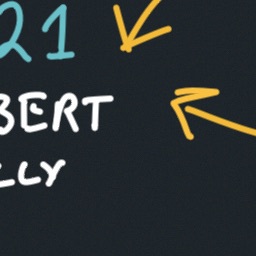 21
BERT
LLY